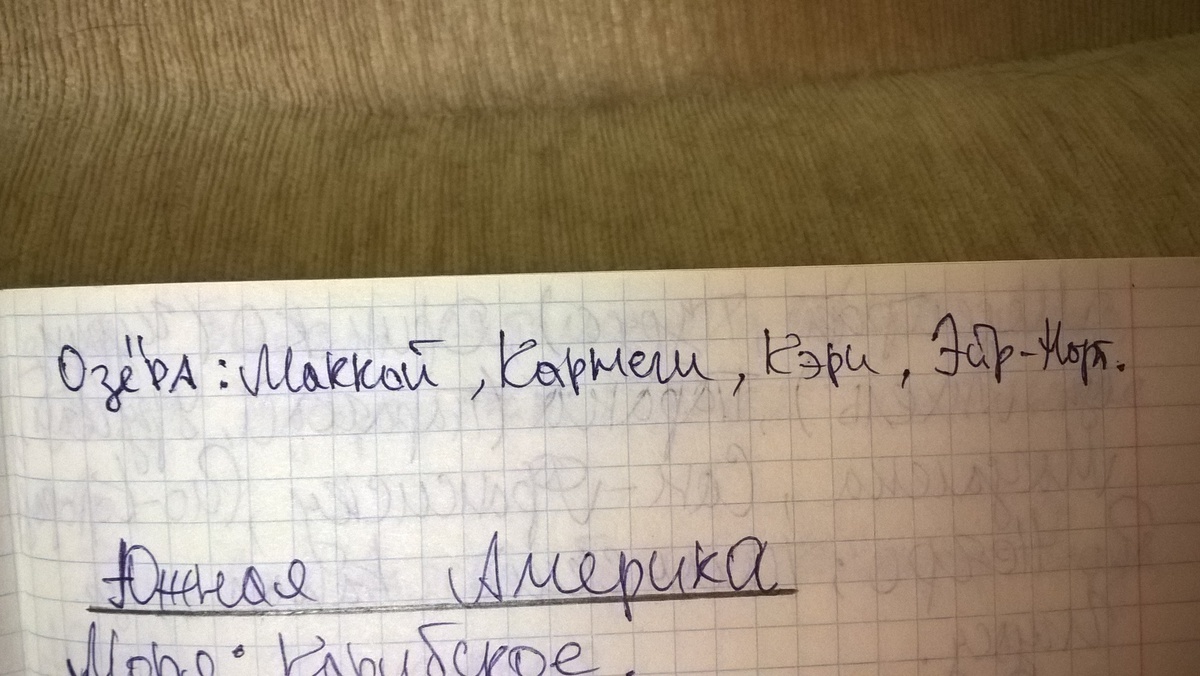 Озёра: Маккой, Кармеш, Кэри, Эйр-Норт.
Южная Америка
Море: Карибское.